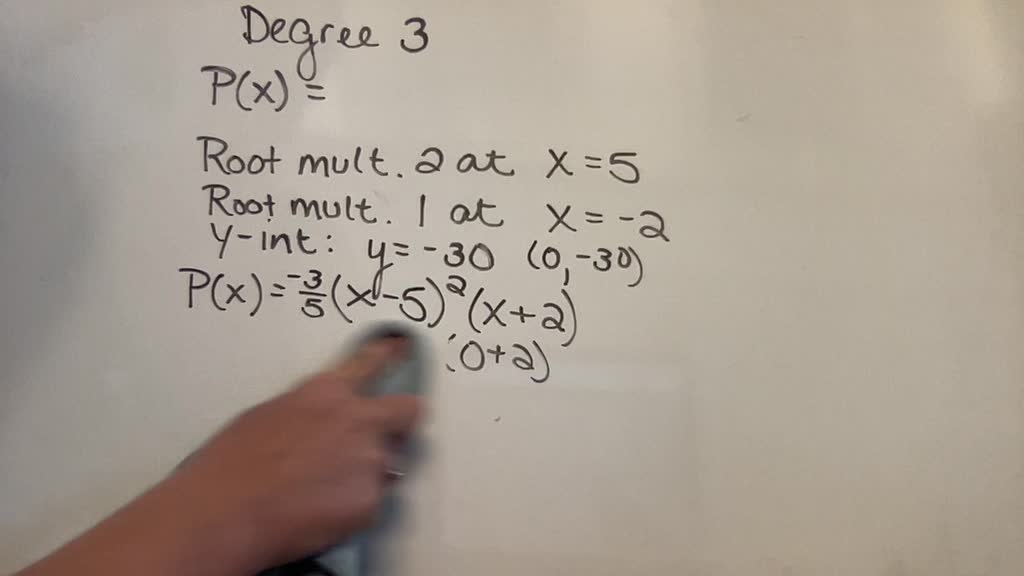 Degree 3
P(x) =
Root mult. 2 at x = 5
Root mult. 1 at x = -2
Y-int: y = -30 (0, -30)
P(x) = -3/5 (x-5)² (x+2)
(0+2)